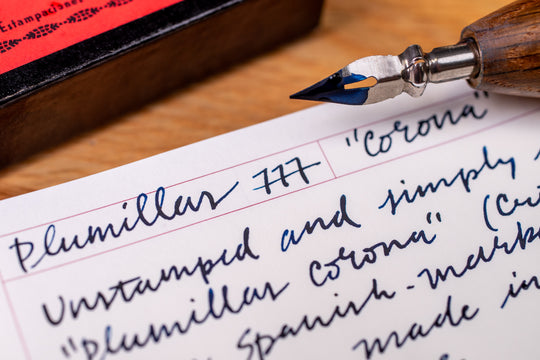 Estampacione
Plumillas 777 "Corona"
Unstamped and simply
"Plumillas Corona"
Spanish-mark
made in